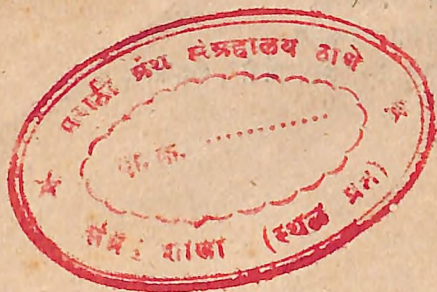 मराठी ग्रंथ संग्रहालय ठाणे
दा. क्र. ............
संदर्भ शाखा (स्थळ प्रत)